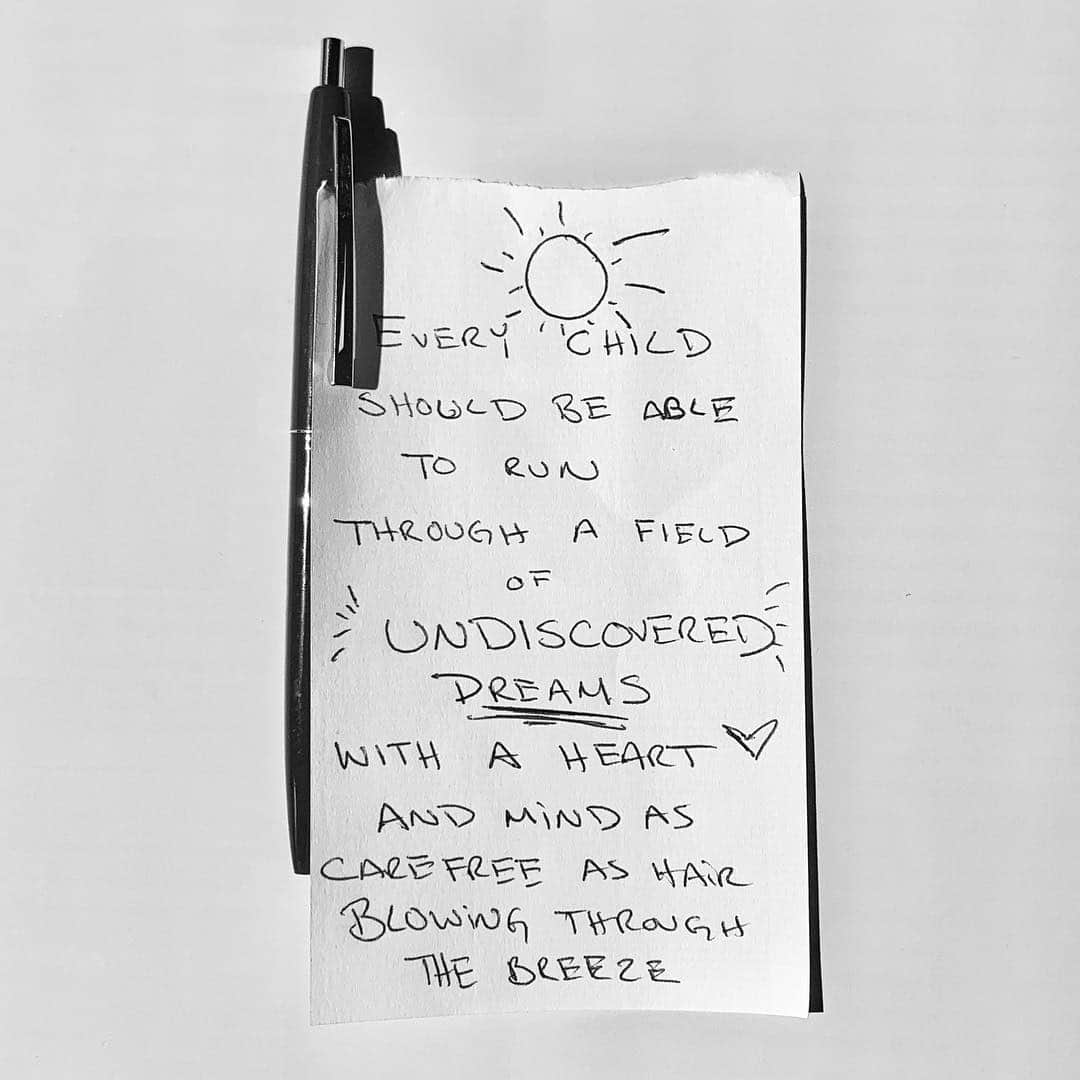 EVERY CHILD
SHOULD BE ABLE
TO RUN
THROUGH A FIELD
OF
UNDISCOVERED
DREAMS
WITH A HEART
AND MIND AS
CAREFREE AS HAIR
BLOWING THROUGH
THE BREEZE